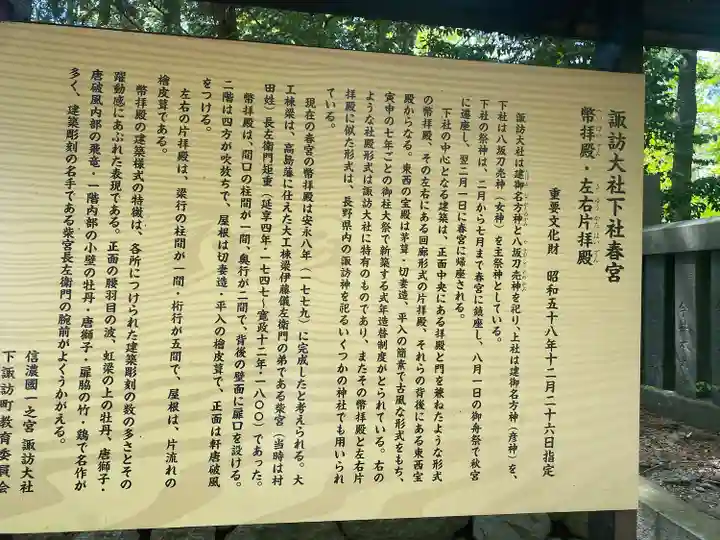 諏訪大社下社春宮
幣拝殿・左右片拝殿
重要文化財 昭和五十八年十二月二十六日指定
諏訪大社は建御名方神と八坂刀売神を祀り、上社は建御名方神(彦神)を、
下社は八坂刀売神(女神)を主祭神としている。
下社の祭神は、二月から七月まで春宮に鎮座し、八月一日の御舟祭で秋宮
に遷座し、翌二月一日に春宮に帰座される。
下社の中心となる建築は、正面中央にある拝殿と門を兼ねたような形式
の幣拝殿、その左右にある回廊形式の片拝殿、それらの背後にある東西宝
殿からなる。東西の宝殿は茅葺・切妻造、平入の簡素で古風な形式をもち、
寅申の七年ごとの御柱大祭で新築する式年造替制度がとられている。右の
ような社殿形式は諏訪大社に特有のものであり、またその幣拝殿と左右片
拝殿に似た形式は、長野県内の諏訪神を祀るいくつかの神社でも用いられ
ている。
現在の春宮の幣拝殿は安永八年(一七七九)に完成したと考えられる。大
工棟梁は、高島藩に仕えた大工棟梁伊藤儀左衛門の弟である柴宮(当時は村
田姓)長左衛門矩重(延享四年・一七四七〜寛政十二年・一八〇〇)であった。
幣拝殿は、間口の柱間が一間、奥行が二間で、背後の壁面に扉口を設ける。
二階は四方が吹放ちで、屋根は切妻造、平入の檜皮葺で、正面は軒唐破風
をつける。
左右の片拝殿は、梁行の柱間が一間・桁行が五間で、屋根は、片流れの
檜皮葺である。
幣拝殿の建築様式の特徴は、各所につけられた建築彫刻の数の多さとその
躍動感にあふれた表現である。正面の腰羽目の波、虹梁の上の牡丹、唐獅子・
唐破風内部の飛竜・一階内部の小壁の牡丹・唐獅子・扉脇の竹・鶏で名作が
多く、建築彫刻の名手である柴宮長左衛門の腕前がよくうかがえる。
信濃國一之宮 諏訪大社
下諏訪町教育委員会